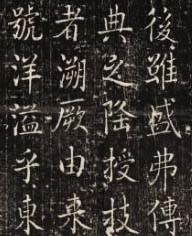 後雖盛弗傳
典之降授枝
者溯厥由来
號洋溢乎東